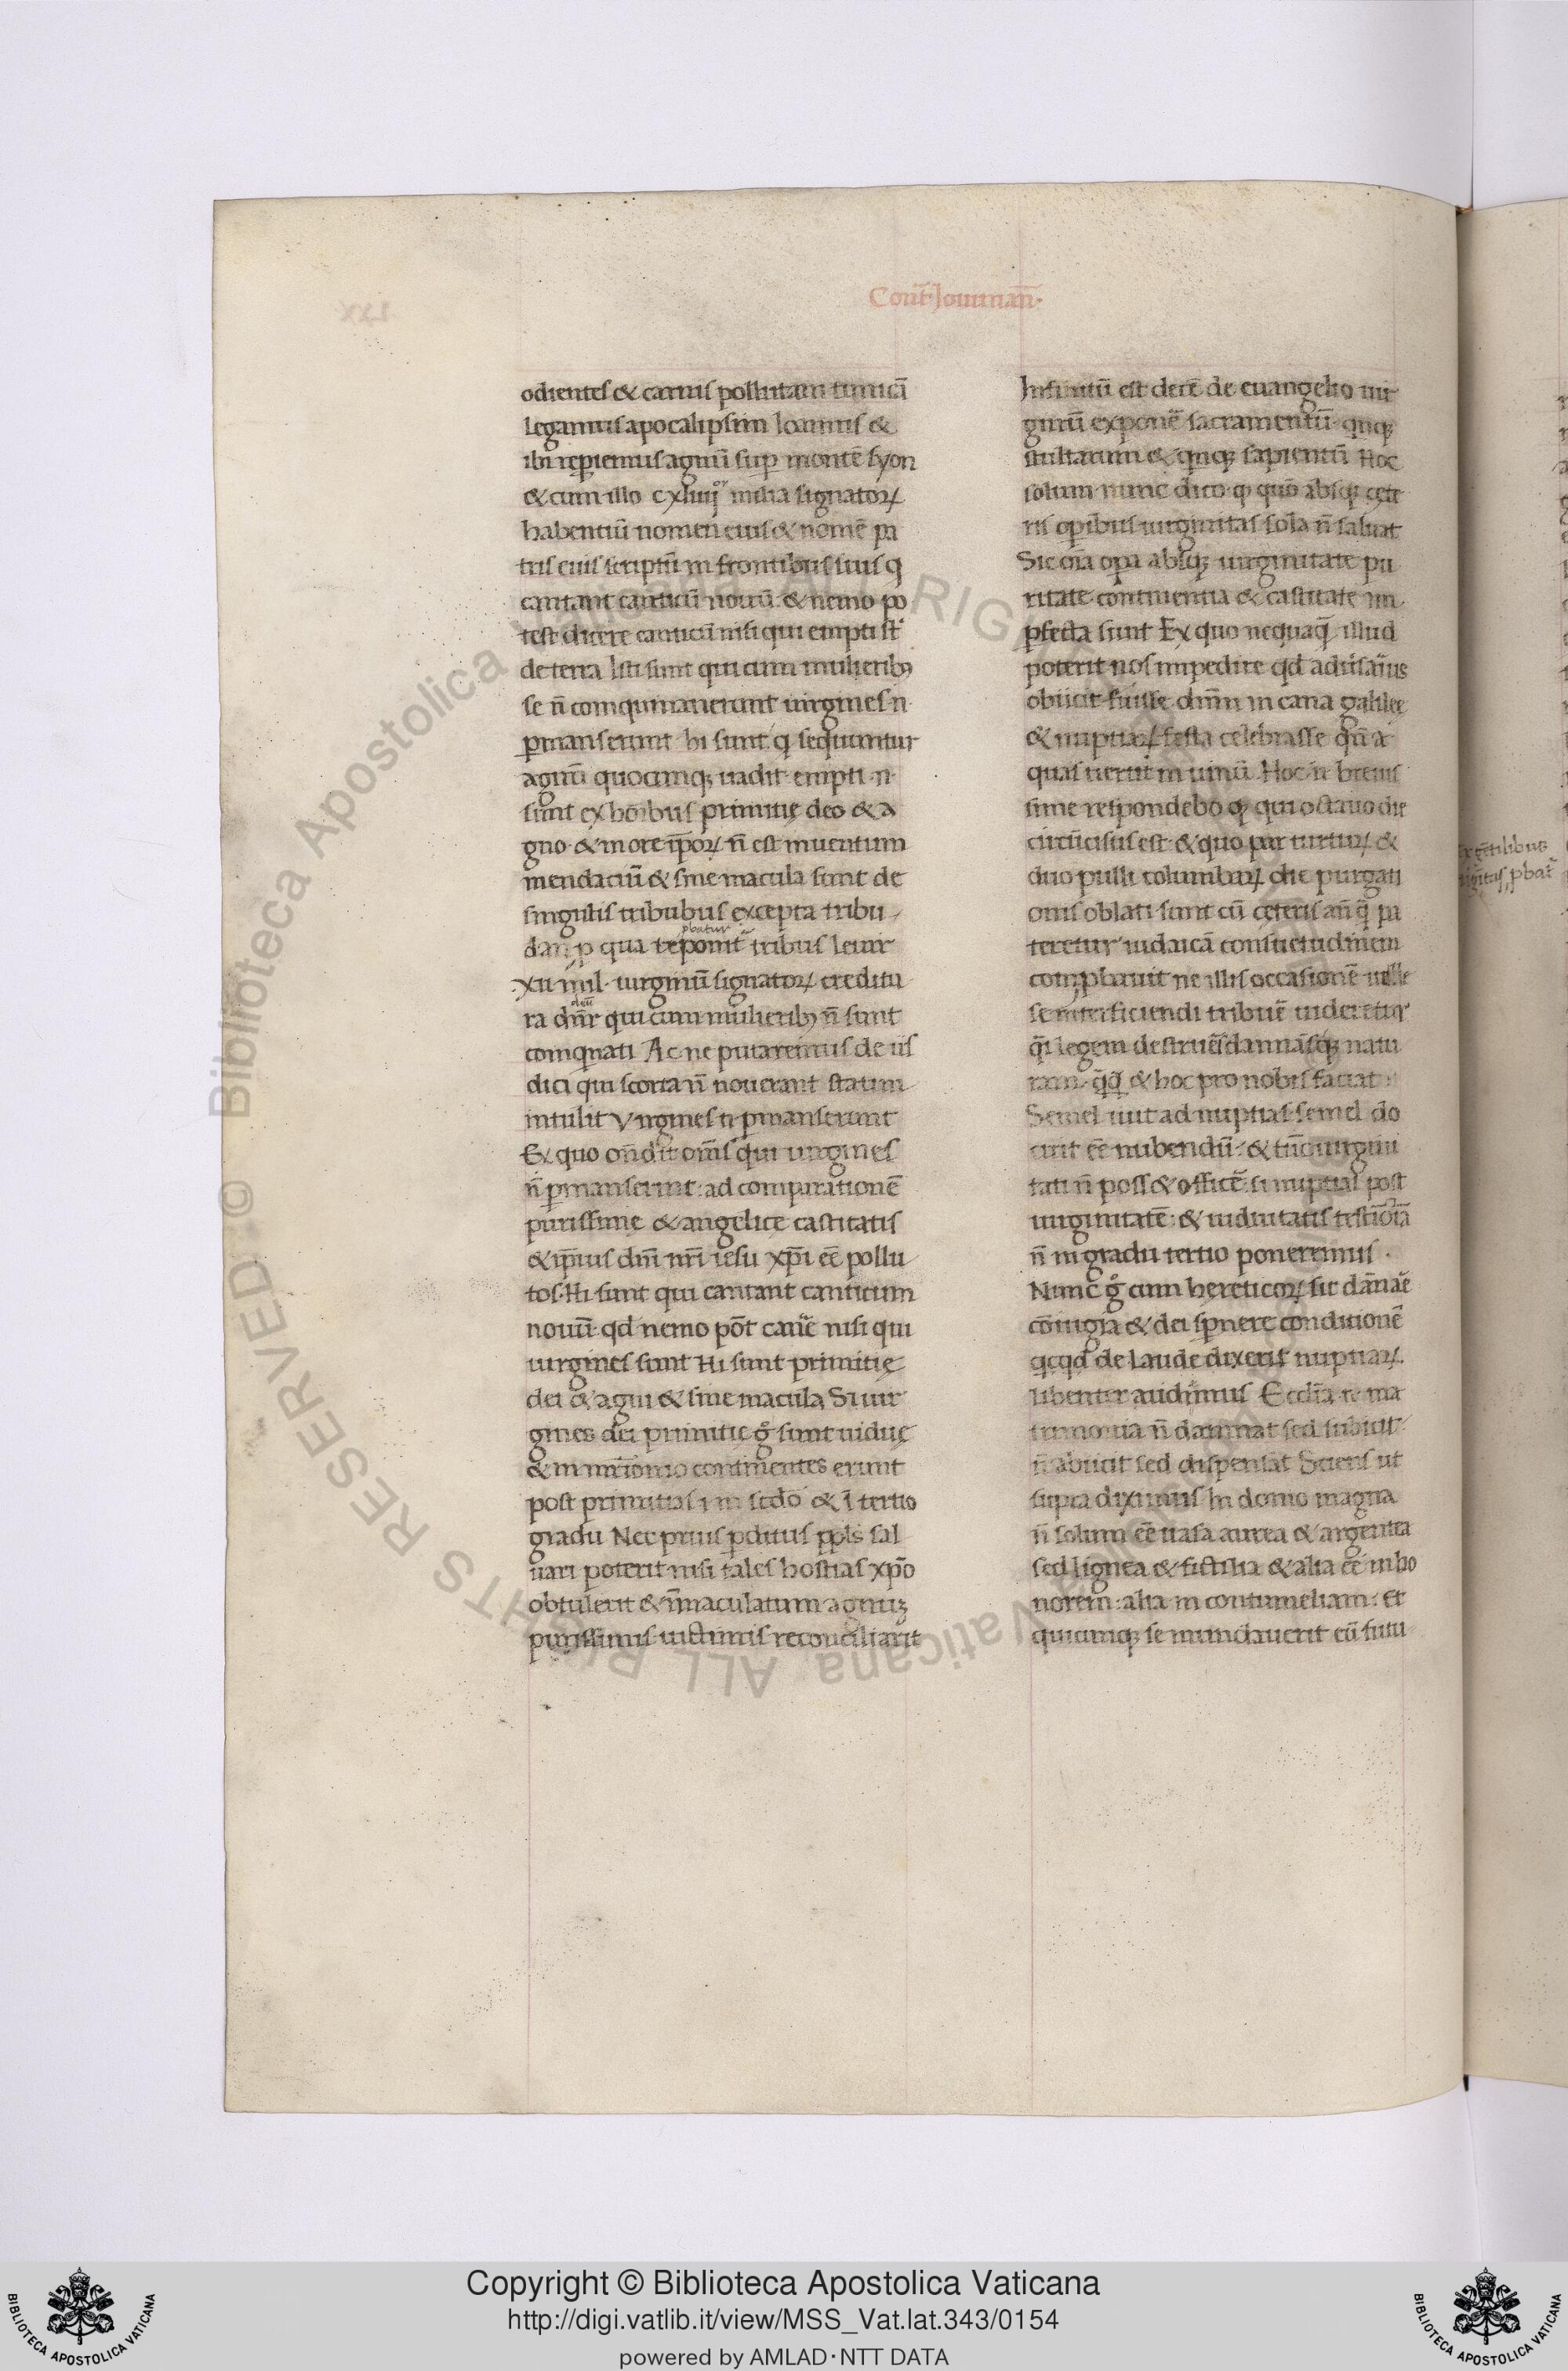 Cont̄ Jouinian̄·
odientes & carnis pollutam tunicā
Legamus apocalipsim Ioannis &
ibi repiemus agnū sup montē syon
& cum illo cxliiij milia signatoꝝ
habentiū nomen eius & nomē pa
tris eius scriptū in frontibus suis q
cantant canticū nouū & nemo po
test dicere canticū nisi qui empti st̄
de terra Isti sunt qui cum mulieribꝫ
se n̄ coinquinauerunt uirgines n̄
ꝑmanserunt hi sunt q sequuntur
agnū quocunqꝫ uadit empti n̄
sunt ex hoībus primitię deo & a
gno & in ore ip̄oꝝ n̄ est inuentum
mendaciū & sine macula sunt de
singulis tribubus excepta tribu
dan p qua reponit̄ tribus leuir
pbatur
xii mil uirginū signatoꝝ creditu
ra dn̄r qui cum mulieribꝫ n̄ sunt
deū
coinqnati Ac ne putaremus de iis
dici qui scorta n̄ nouerant statim
intulit Virgines n̄ ꝑmanserunt
Ex quo on̄dit om̄s qui uirgines
n̄ ꝑmanserint: ad comparationē
purissime & angelice castitatis
& ip̄ius dn̄i nr̄i iesu xp̄i eē pollu
tos· Hi sunt qui cantant canticum
nouū qd nemo pōt canē nisi qui
uirgines sunt Hi sunt primitię
dei & agni & sine macula Si uir
gines dei primitię g̊ sunt uiduę
& in mr̄ionio continentes erunt
post primitias i in scdo & ī tertio
gradu Nec prius ꝑditus ppls sal
uari poterit nisi tales hostias xp̄o
obtulerit & īmaculatum agnuꝫ
purissimis uictimis reconciliarit
Infinitū est dec̄ē de euangelio uir
ginū exponē sacramentū quiqꝫ
stultarum & quiqꝫ sapientū Hoc
solum nunc dico q quō absqꝫ cete
ris oꝑibus uirginitas sola n̄ saluat
Sic oīa opa absqꝫ uirginitate pu
ritate continentia & castitate im
ꝑfecta sunt Ex quo nequaq̄ illud
poterit nos impedire qd aduīsarius
obiicit fuisse dn̄m in cana galilee
& nuptiaꝝ festa celebrasse qn̄ a
quas uertit in uinū Hoc n̄ breuis
sime respondebo q qui octauo die
circūcisus est & quo par turtuꝝ &
duo pulli columbaꝝ die purgati
onis oblati sunt cū ceteris an̄ q̄ pa
teretur iudaicā consuetudinem
comꝓbauit ne illis occasionē iuste
se interficiendi tribuē uideretur
q̄i legem destruēs dannāsqꝫ natu
ram q̄q̄ & hoc pro nobis faciat
Semel iuit ad nuptias semel do
cuit eē nubendū: & tūc uirgini
tati n̄ poss& officē si nuptias post
uirginitatē & uiduitatis testiōīā
n̄ in gradu tertio poneremus ·
Nunc g̊ cum hereticoꝝ sit dānaē
cōiugia & dei sꝑnere conditionē
qcqd de laude dixerit nuptiaꝝ
libenter audimus Ecclīa n̄ ma
trimonia n̄ damnat sed subiicit
n̄ abiicit sed dispensat Sciens ut
supra diximus In domo magna
n̄ solum eē uasa aurea & argentea
sed lignea & fictilia & alia eē in ho
norem: alia in contumeliam: Et
quicunqꝫ se mundauerit eū futu
Copyright © Biblioteca Apostolica Vaticana
http://digi.vatlib.it/view/MSS_Vat.lat.343/0154
powered by AMLAD·NTT DATA